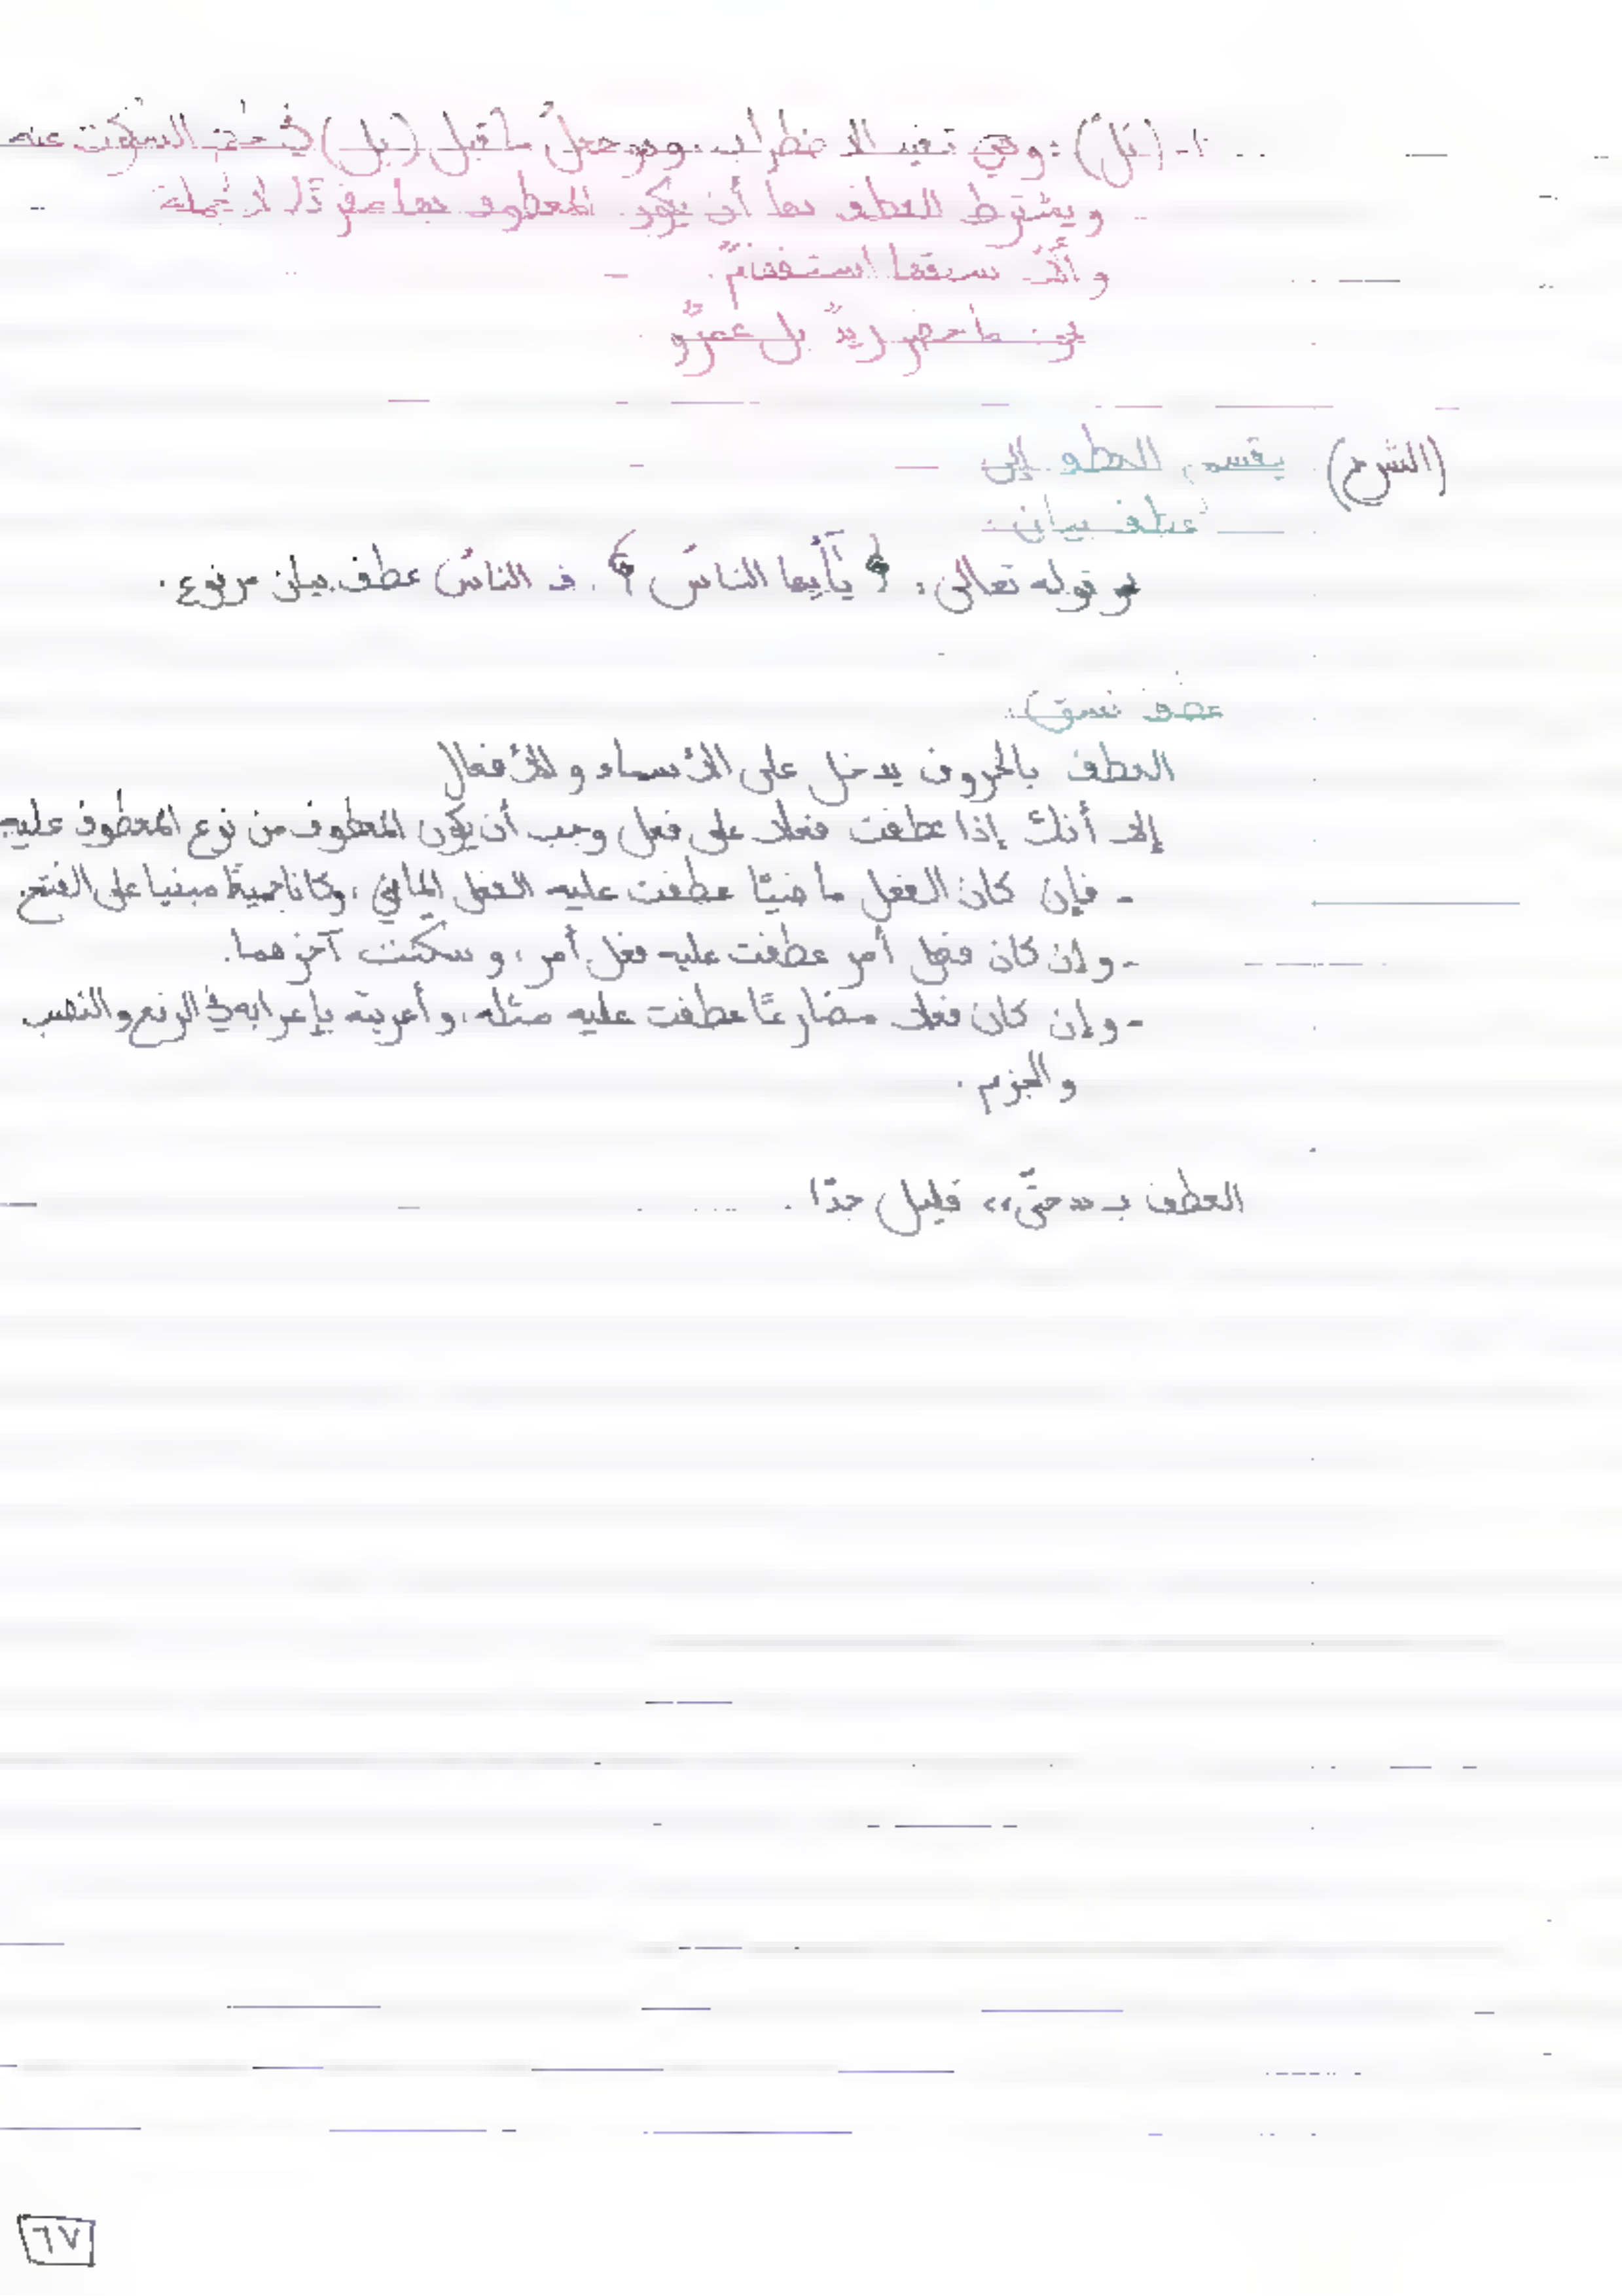 ٦- (بَلْ) : وهي تفيد الإضطراب، وهو جعلُ ما قبل (بل) في حكم السكوت عنه
ويشترط للعطف بها أن يكون المعطوف بها مفردًا لا جملة
وألّا يسبقها استفهامٌ.
نحو: ما حضر زيدٌ بل عمرٌو
(الشرح) يقسم العطف إلى
عطف بيان:
نحو قوله تعالى: ﴿ يَٰٓأَيُّهَا النَّاسُ ﴾. فـ الناسُ عطف بيان مرفوع.
عطف نسق:
العطف بالحروف يدخل على الأسماء والأفعال
إلا أنك إذا عطفت فعلا على فعل وجب أن يكون المعطوف من نوع المعطوف عليه
- فإن كان الفعل ماضيًا عطفت عليه الفعل الماضي، وكانا جميعًا مبنيا على الفتح.
- وإن كان فعل أمر عطفت عليه فعل أمر، و سكّنت آخرهما.
- وإن كان فعلا مضارعًا عطفت عليه مثله، وأعربته بإعرابه في الرفع والنصب
والجزم.
العطف بـ «حتّى» قليل جدًا.
٦٧